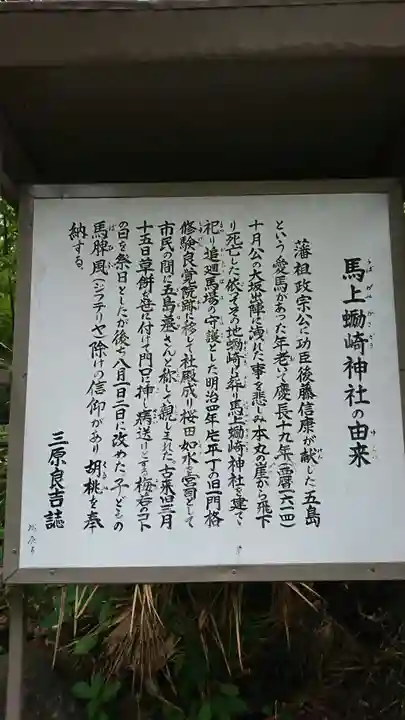 馬上蛎崎神社の由来
藩祖政宗公に功臣後藤信康が献じた五島
という愛馬があった年老いて慶長十九年(西暦一六一四)
十月公の大坂出陣に洩れた事を悲しみ本丸の崖から飛下
り死亡した依ってその地蛎崎に葬り馬上蛎崎神社を建て
祀り追廻馬場の守護とした明治四年片平丁の旧一門格
修験良覚院跡に移して社殿成り桜田如水を宮司として
市民の間に五島墓さんと称して親しまれた古来旧三月
十五日草餅を笹に付けて門口に挿し病送りとする梅若のコト
の日を祭日としたが後ち八月一日二日に改めた子どもの
馬脾風(ジフテリヤ)除けの信仰があり胡桃を奉
納する。
三原良吉誌